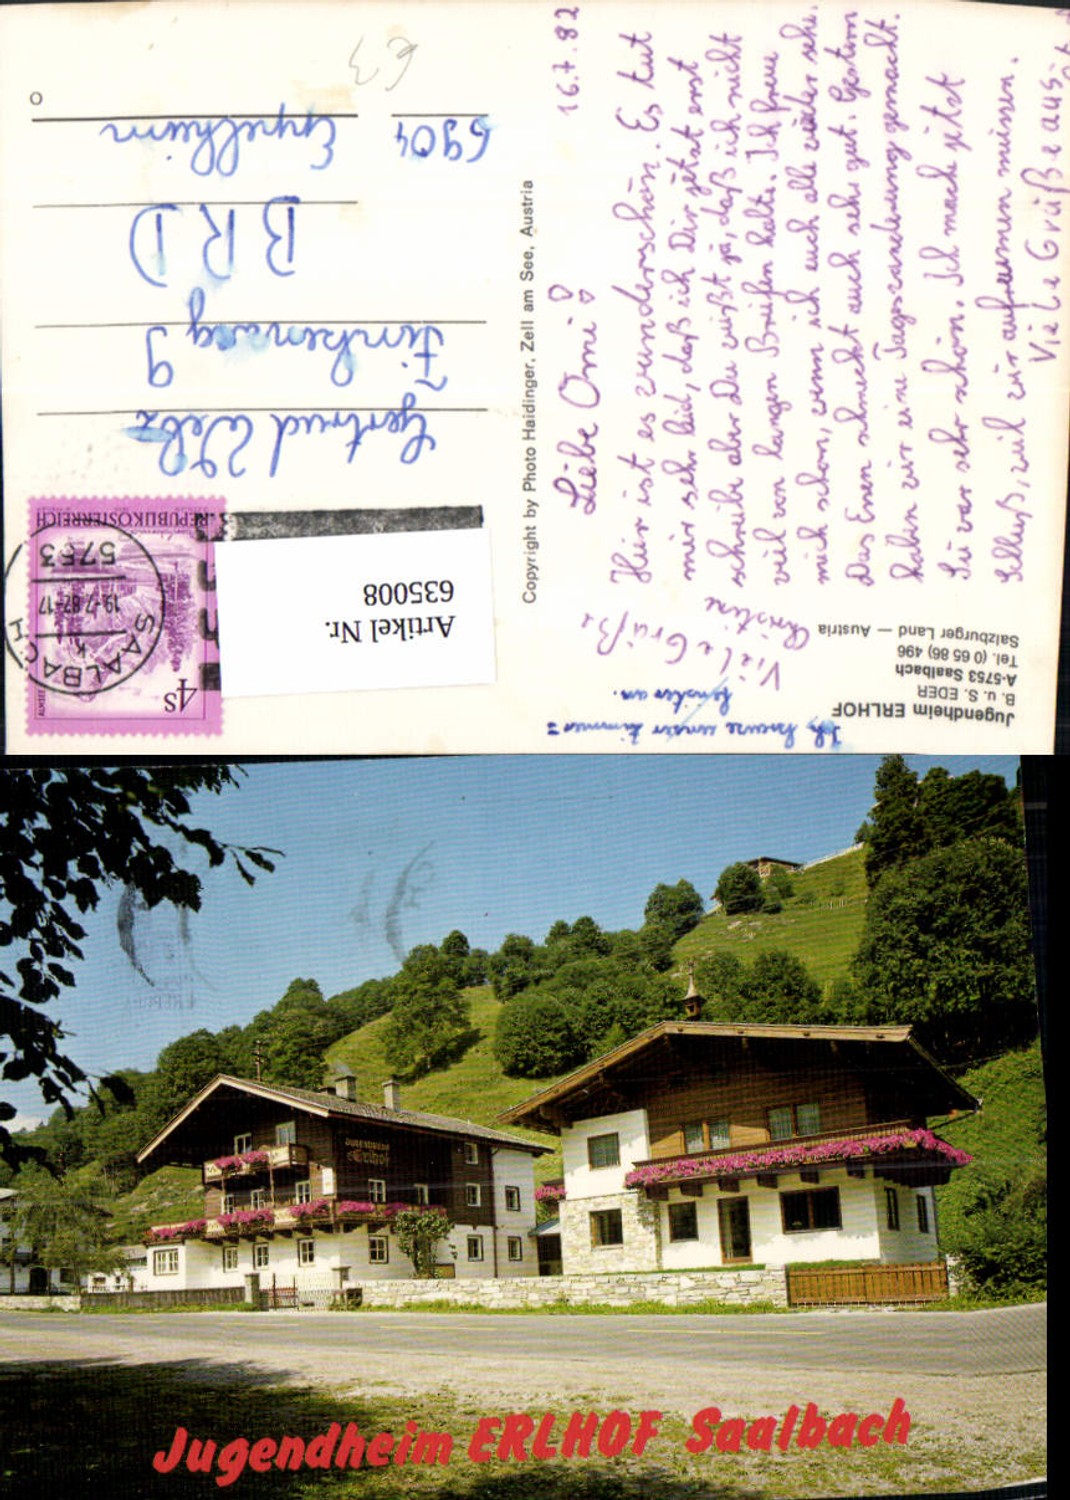 16.7.82
Liebe Omi!
Hier ist es wunderschön. Es tut
mir sehr leid, daß ich Dir jetzt erst
schreibe aber Du weißt ja, daß ich nicht
viel von langen Briefen halte. Ich freue
mich schon, wenn ich euch alle wieder sehe.
Das Essen schmeckt auch sehr gut. Gestern
haben wir eine Tageswanderung gemacht.
Sie war sehr schön. Ich mache jetzt
Schluß, weil wir aufräumen müssen.
Viele Grüße aus
Viele Grüße
Christine
Ich kreuze unser Zimmer=
fenster an.
Jugendheim ERLHOF
B. u. S. EDER
A-5753 Saalbach
Tel. (0 65 86) 496
Salzburger Land — Austria
Copyright by Photo Haidinger, Zell am See, Austria
4S
ALMSEE
REPUBLIK ÖSTERREICH
SAALBACH
k
19.-7.82-17
5753
Artikel Nr.
635008
Gertrud Welz
Finkenweg 9
BRD
6904 Eppelheim
€3
JUGENDHEIM
Erlhof
Jugendheim ERLHOF Saalbach